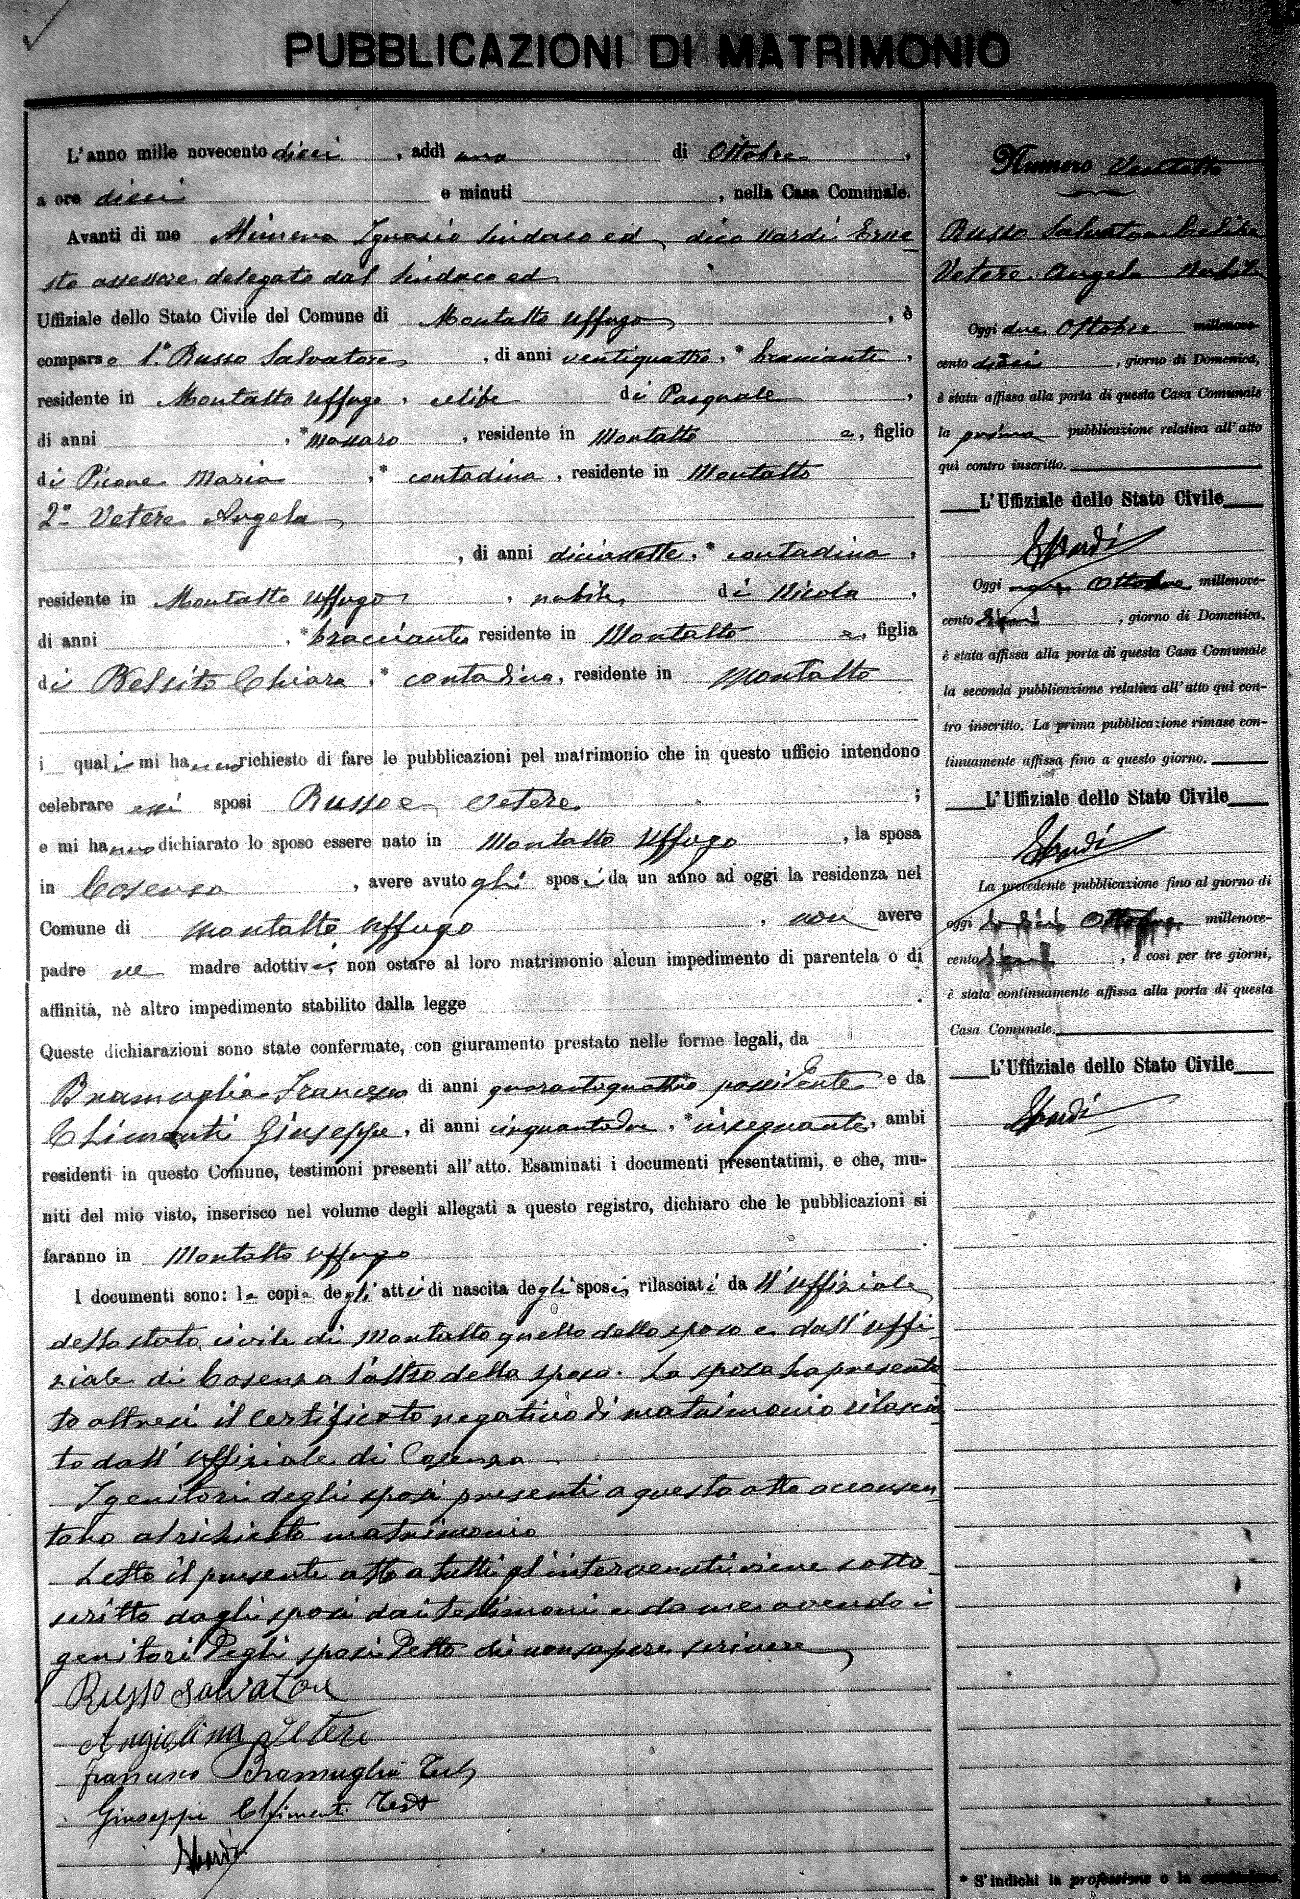 PUBBLICAZIONI DI MATRIMONIO
L'anno mille novecento dieci, addì uno di Ottobre,
a ore dieci e minuti , nella Casa Comunale.
Avanti di me Minerva Ignazio Sindaco ed, dico Nardi Erne
sto assessore delegato dal Sindaco ed
Uffiziale dello Stato Civile del Comune di Montalto Uffugo, è
comparso 1° Russo Salvatore, di anni ventiquattro, * bracciante,
residente in Montalto Uffugo, celibe di Pasquale,
di anni , * massaro, residente in Montalto e, figlio
di Picone Maria, * contadina, residente in Montalto
2° Vetere Angela
, di anni diciassette, * contadina,
residente in Montalto Uffugo, nubile, di Nicola,
di anni , * bracciante residente in Montalto e, figlia
di Belsito Chiara, * contadina, residente in Montalto
i quali mi hanno richiesto di fare le pubblicazioni pel matrimonio che in questo ufficio intendono
celebrare essi sposi Russo e Vetere ;
e mi hanno dichiarato lo sposo essere nato in Montalto Uffugo, la sposa
in Cosenza, avere avuto gli sposi da un anno ad oggi la residenza nel
Comune di Montalto Uffugo, non avere
padre ne madre adottivi, non ostare al loro matrimonio alcun impedimento di parentela o di
affinità, nè altro impedimento stabilito dalla legge .
Queste dichiarazioni sono state confermate, con giuramento prestato nelle forme legali, da
Bramuglia Francesco di anni quarantaquattro possidente e da
Chimenti Giuseppe, di anni cinquantadue, * insegnante, ambi
residenti in questo Comune, testimoni presenti all'atto. Esaminati i documenti presentatimi, e che, mu-
niti del mio visto, inserisco nel volume degli allegati a questo registro, dichiaro che le pubblicazioni si
faranno in Montalto Uffugo .
I documenti sono: le copie degli atti di nascita degli sposi rilasciati da ll'Uffiziale
dello stato civile di Montalto quello dello sposo e dall'Uffi
ziale di Cosenza l'altro della sposa. La sposa ha presenta
to altresì il certificato negativo di matrimonio rilascia
to dall'Uffiziale di Cosenza
I genitori degli sposi presenti a questo atto acconsen
tono al richiesto matrimonio
Letto il presente atto a tutti gl'intervenuti viene sotto
scritto dagli sposi dai testimoni e da me avendo i
genitori degli sposi detto di non sapere scrivere
Russo Salvatore
Angiolina Vetere
Francesco Bramuglia Test
Giuseppe Chimenti Test
Numero Ventotto
Russo Salvatore Celibe
Vetere Angela Nubile
Oggi due Ottobre millenove-
cento dieci, giorno di Domenica,
è stata affissa alla porta di questa Casa Comunale
la prima pubblicazione relativa all'atto
quì contro inscritto.
L'Uffiziale dello Stato Civile
Oggi Ottobre millenove-
cento , giorno di Domenica,
è stata affissa alla porta di questa Casa Comunale
la seconda pubblicazione relativa all'atto quì con-
tro inscritto. La prima pubblicazione rimase con-
tinuamente affissa fino a questo giorno.
L'Uffiziale dello Stato Civile
La precedente pubblicazione fino al giorno di
oggi Ottobre millenove-
cento , e così per tre giorni,
è stata continuamente affissa alla porta di questa
Casa Comunale.
L'Uffiziale dello Stato Civile
* S'indichi la professione o la condizione.